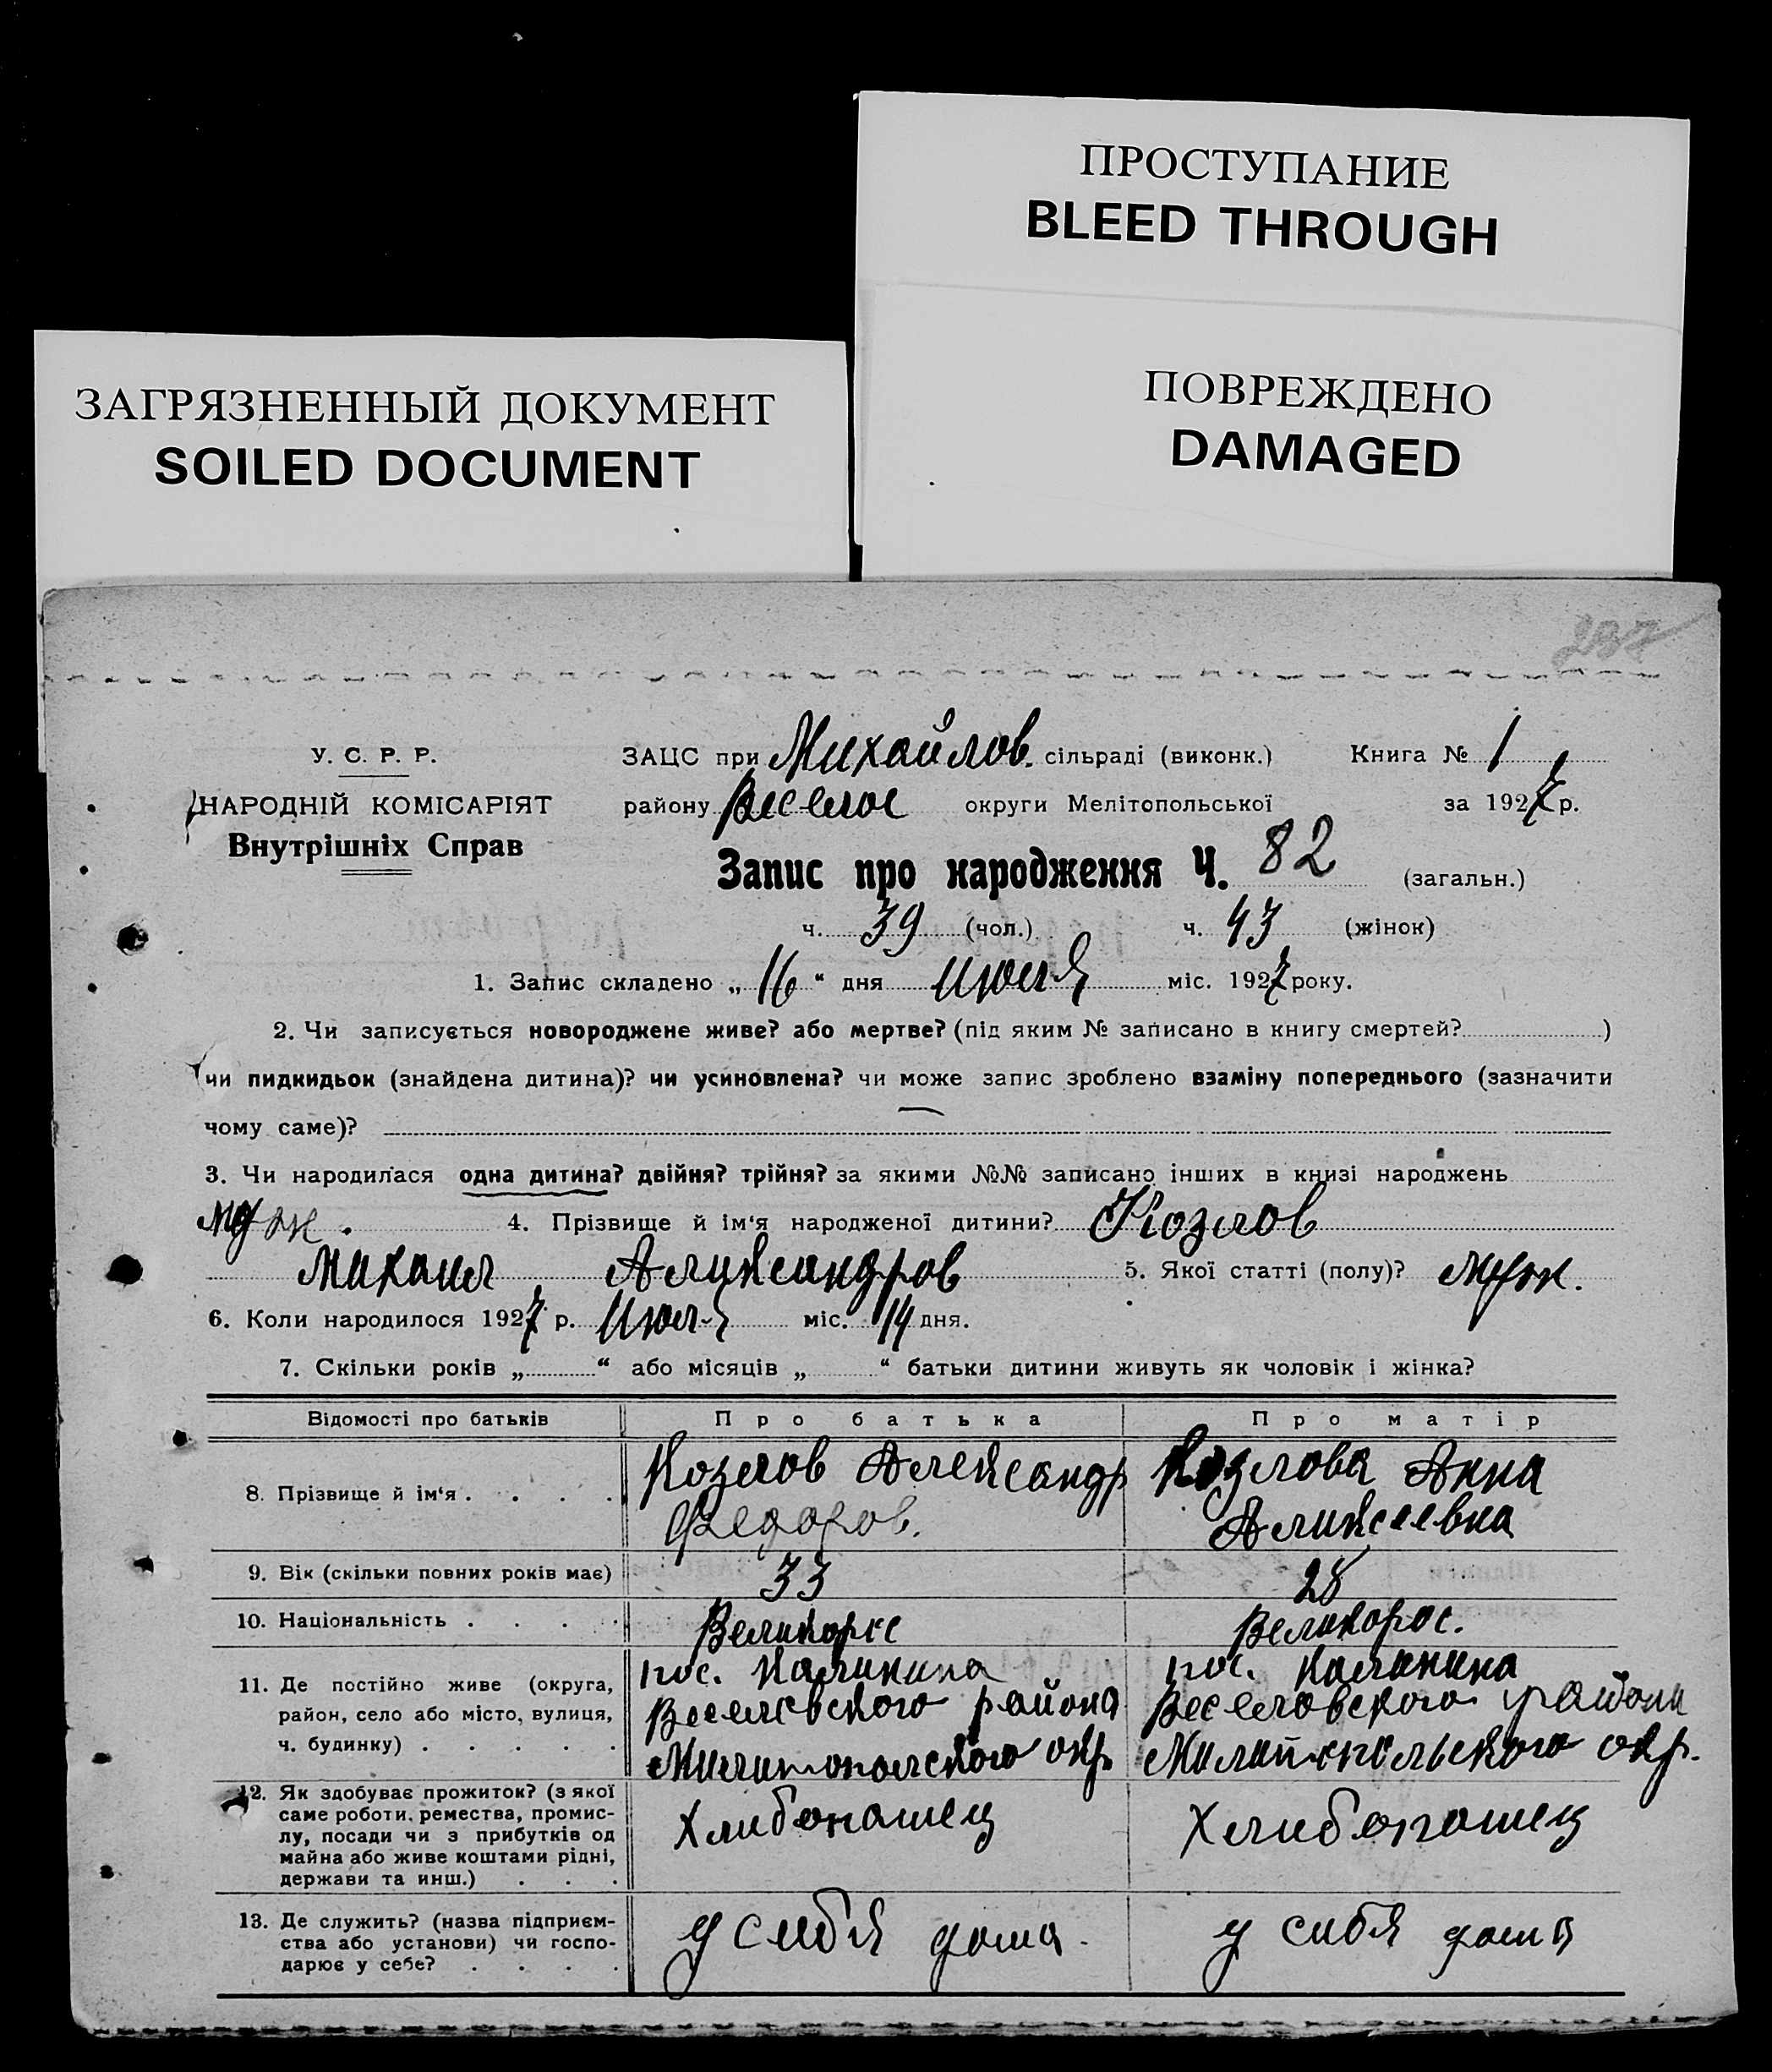 ПРОСТУПАНИЕ
BLEED THROUGH
ПОВРЕЖДЕНО
DAMAGED
ЗАГРЯЗНЕННЫЙ ДОКУМЕНТ
SOILED DOCUMENT
237
У. С. Р. Р.
НАРОДНІЙ КОМІСАРІЯТ
Внутрішніх Справ
ЗАЦС при Михайлов. сільраді (виконк.) Книга № 1
району Веселое округи Мелітопольської за 1927 р.
Запис про народження Ч. 82 (загальн.)
ч. 39 (чол.) ч. 43 (жінок)
1. Запис складено „16“ дня июля міс. 1927 року.
2. Чи записується новороджене живе? або мертве? (під яким № записано в книгу смертей? )
чи пидкидьок (знайдена дитина)? чи усиновлена? чи може запис зроблено взаміну попереднього (зазначити
чому саме)?
3. Чи народилася одна дитина? двійня? трійня? за якими №№ записано інших в книзі народжень
муж. 4. Прізвище й ім‘я народженої дитини? Козлов
Михаил Александров 5. Якої статті (полу)? муж.
6. Коли народилося 1927 р. Июля міс. 14 дня.
7. Скільки років „ “ або місяців „ “ батьки дитини живуть як чоловік і жінка?
Відомості про батьків Про батька Про матір
8. Прізвище й ім‘я . . . . Козлов Александр Козлова Анна
Федоров. Аликсеевна
9. Вік (скільки повних років має) 33 28
10. Національність . . . . Великорос Великорос.
11. Де постійно живе (округа, район, село або місто, вулиця, ч. будинку) . . . . .
пос. Калинина пос. Калинина
Веселовского района Веселовского района
Милитопольского окр. Милитопольского окр.
12. Як здобуває прожиток? (з якої
саме роботи, ремества, промис-
лу, посади чи з прибутків од
майна або живе коштами рідні,
держави та инш.) . . .
Хлибопашец Хлибопашец
13. Де служить? (назва підприєм-
ства або установи) чи госпо-
дарює у себе? . . . .
у сибя дома. у сибя дома